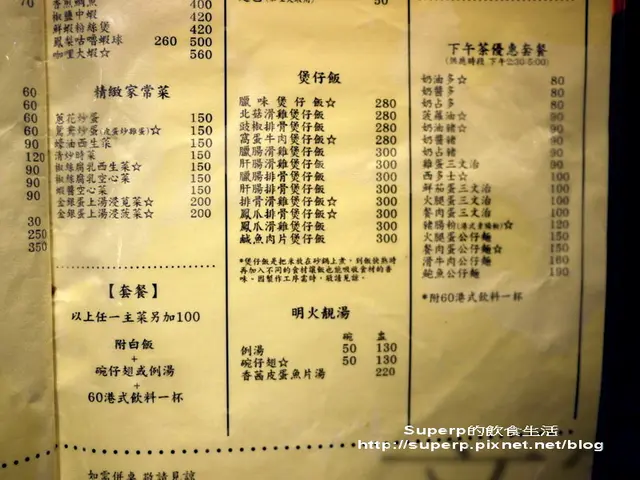 70
60
60
60
90
120
90
90
90
30
250
350
香煎鯛魚 400
椒鹽中蝦 420
鮮蝦粉絲煲 420
鳳梨咕嚕蝦球 260 500
咖哩大蝦☆ 560
精緻家常菜
蔥花炒蛋 150
鴛鴦炒蛋(皮蛋炒雞蛋)☆ 150
蠔油西生菜 150
清炒時菜 150
椒絲腐乳西生菜☆ 150
椒絲腐乳空心菜 150
蝦醬空心菜 150
金銀蛋上湯浸莧菜☆ 200
金銀蛋上湯浸菠菜☆ 200
【套餐】
以上任一主菜另加100
附白飯
+
碗仔翅或例湯
+
60港式飲料一杯
50
煲仔飯
臘味煲仔飯☆ 280
北菇滑雞煲仔飯 280
豉椒排骨煲仔飯 280
窩蛋牛肉煲仔飯☆ 280
臘腸滑雞煲仔飯 300
肝腸滑雞煲仔飯 300
臘腸排骨煲仔飯 300
肝腸排骨煲仔飯 300
排骨滑雞煲仔飯☆ 300
鳳爪排骨煲仔飯☆ 300
鳳爪滑雞煲仔飯 300
鹹魚肉片煲仔飯 300
*煲仔飯是把米放在砂鍋上煮，到飯快熟時
再加入不同的食材讓飯也能吸收食材的香
味。因製作工序需時，敬請見諒。
明火靚湯
碗 盅
例湯 50 130
碗仔翅☆ 50 130
香茜皮蛋魚片湯 220
下午茶優惠套餐
(供應時段 下午2:30-5:00)
奶油多☆ 80
奶醬多 80
奶占多 80
菠蘿油☆ 90
奶油豬☆ 90
奶醬豬 90
奶占豬 90
雞蛋三文治 90
西多士☆ 100
鮮茄蛋三文治 100
火腿蛋三文治 100
餐肉蛋三文治 100
豬腸粉(港式齋腸粉)☆ 120
火腿蛋公仔麵 150
餐肉蛋公仔麵☆ 150
滑牛肉公仔麵 160
鮑魚公仔麵 190
*附60港式飲料一杯
如需併桌 敬請見諒
Superp的飲食生活
http://superp.pixnet.net/blog